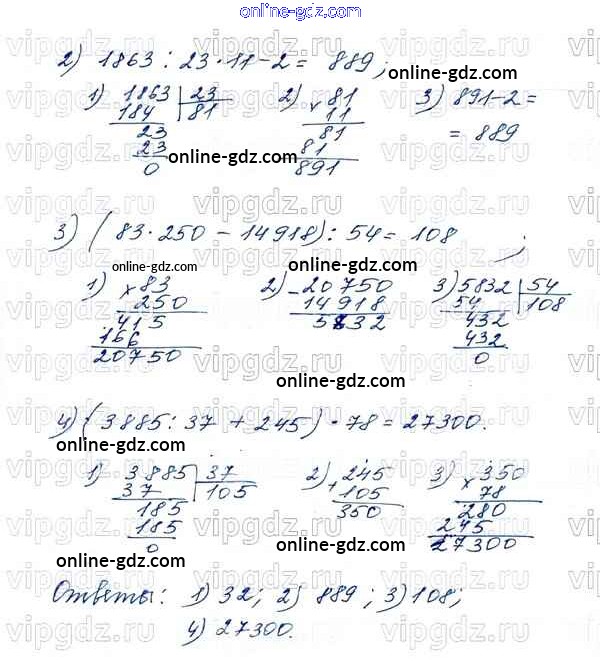 online-gdz.com
2) 1863 : 23 · 11 - 2 = 889;
online-gdz.com
1) 1863 | 23
184 | 81
23
23
0
2) × 81
11
81
81
891
3) 891 - 2 =
= 889
online-gdz.com
3) (83 · 250 - 14918) : 54 = 108 ;
online-gdz.com
1) × 83
250
415
166
20750
2) - 20750
14918
5832
3) 5832 | 54
54 | 108
432
432
0
online-gdz.com
online-gdz.com
4) (3885 : 37 + 245) · 78 = 27300.
online-gdz.com
1) 3885 | 37
37 | 105
185
185
0
2) + 245
105
350
3) × 350
78
280
245
27300
online-gdz.com
online-gdz.com
Ответы: 1) 32; 2) 889; 3) 108;
4) 27300.
online-gdz.com
vipgdz.ru